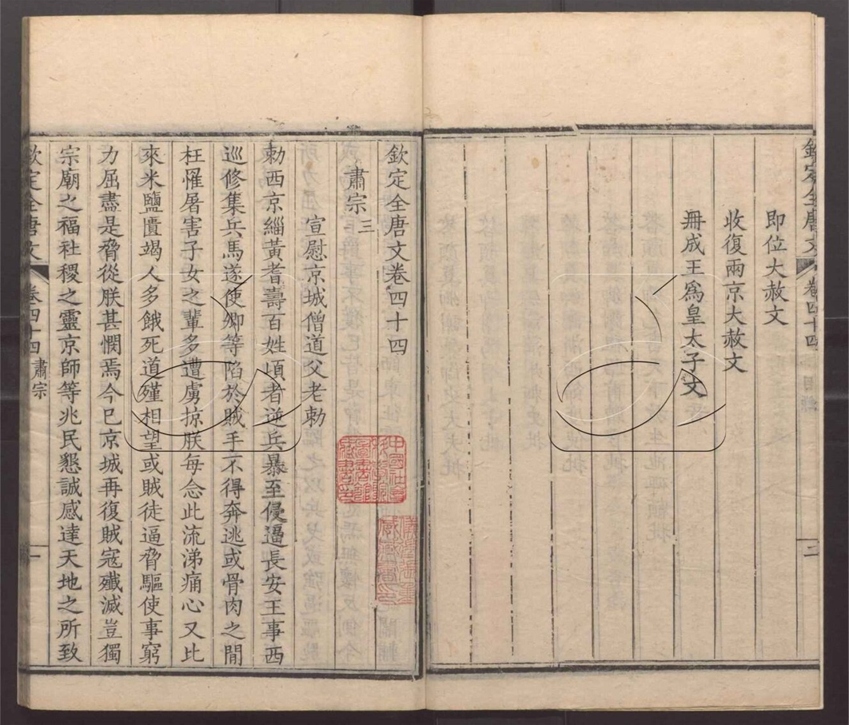 欽定全唐文 卷四十四 目錄 二
即位大赦文
收復兩京大赦文
冊成王爲皇太子文
欽定全唐文卷四十四
肅宗三
宣慰京城僧道父老勅
勅西京緇黃耆壽百姓頃者逆兵暴至侵逼長安王事西
巡修集兵馬遂使卿等陷於賊手不得奔逃或骨肉之閒
枉罹屠害子女之輩多遭虜掠朕每念此流涕痛心又比
來米鹽匱竭人多餓死道殣相望或賊徒逼脅驅使事窮
力屈盡是脅從朕甚憫焉今已京城再復賊寇殲滅豈獨
宗廟之福社稷之靈京師等兆民懇誠感達天地之所致
欽定全唐文 卷四十四 肅宗 一